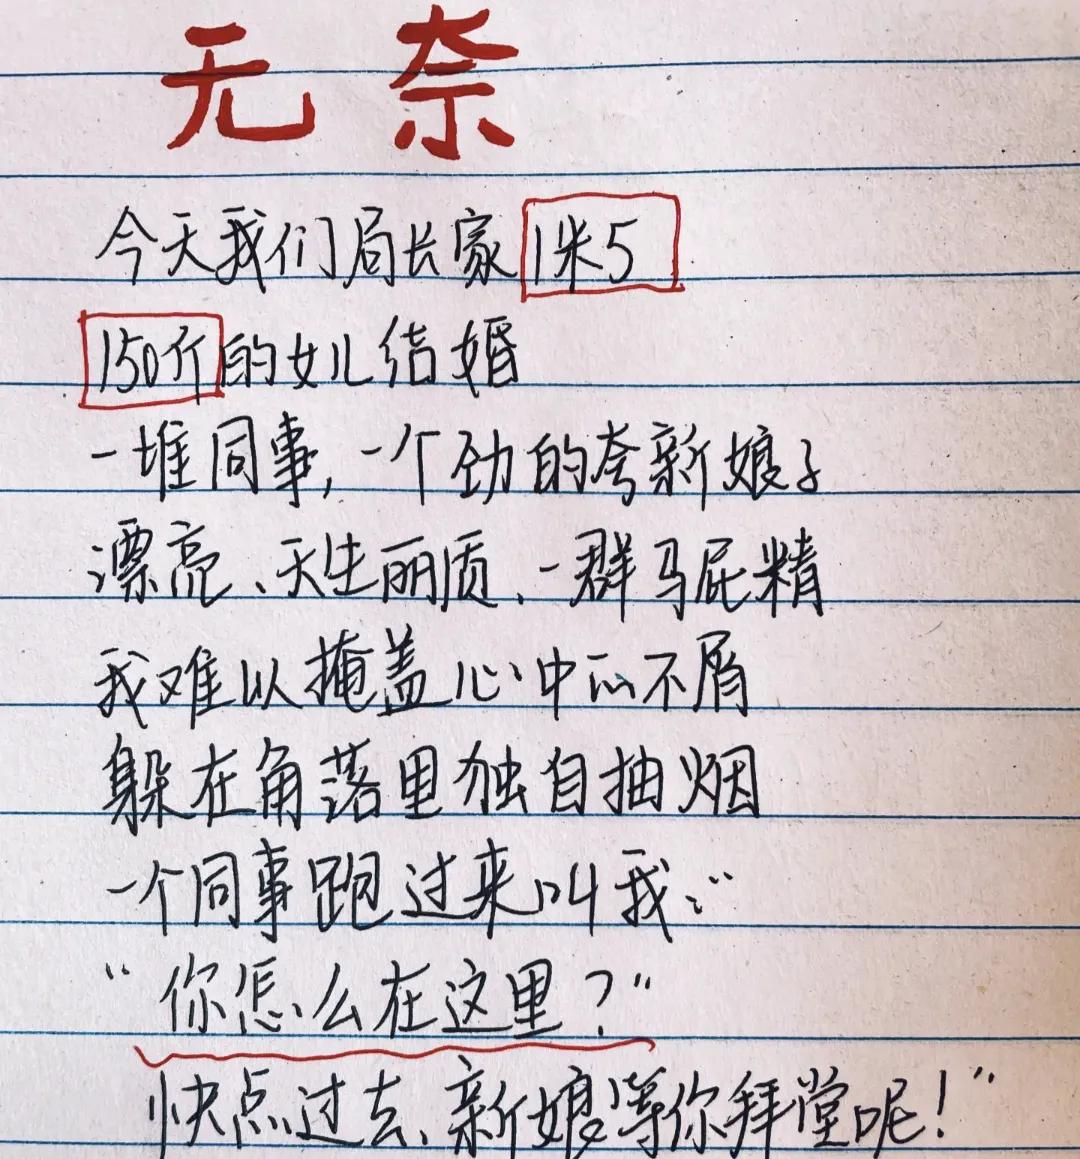 无奈
今天我们局长家1米5
150斤的女儿结婚
一堆同事,一个劲的夸新娘子
漂亮、天生丽质、一群马屁精
我难以掩盖心中的不屑
躲在角落里独自抽烟
一个同事跑过来叫我:“
“你怎么在这里?”
快点过去、新娘等你拜堂呢!”